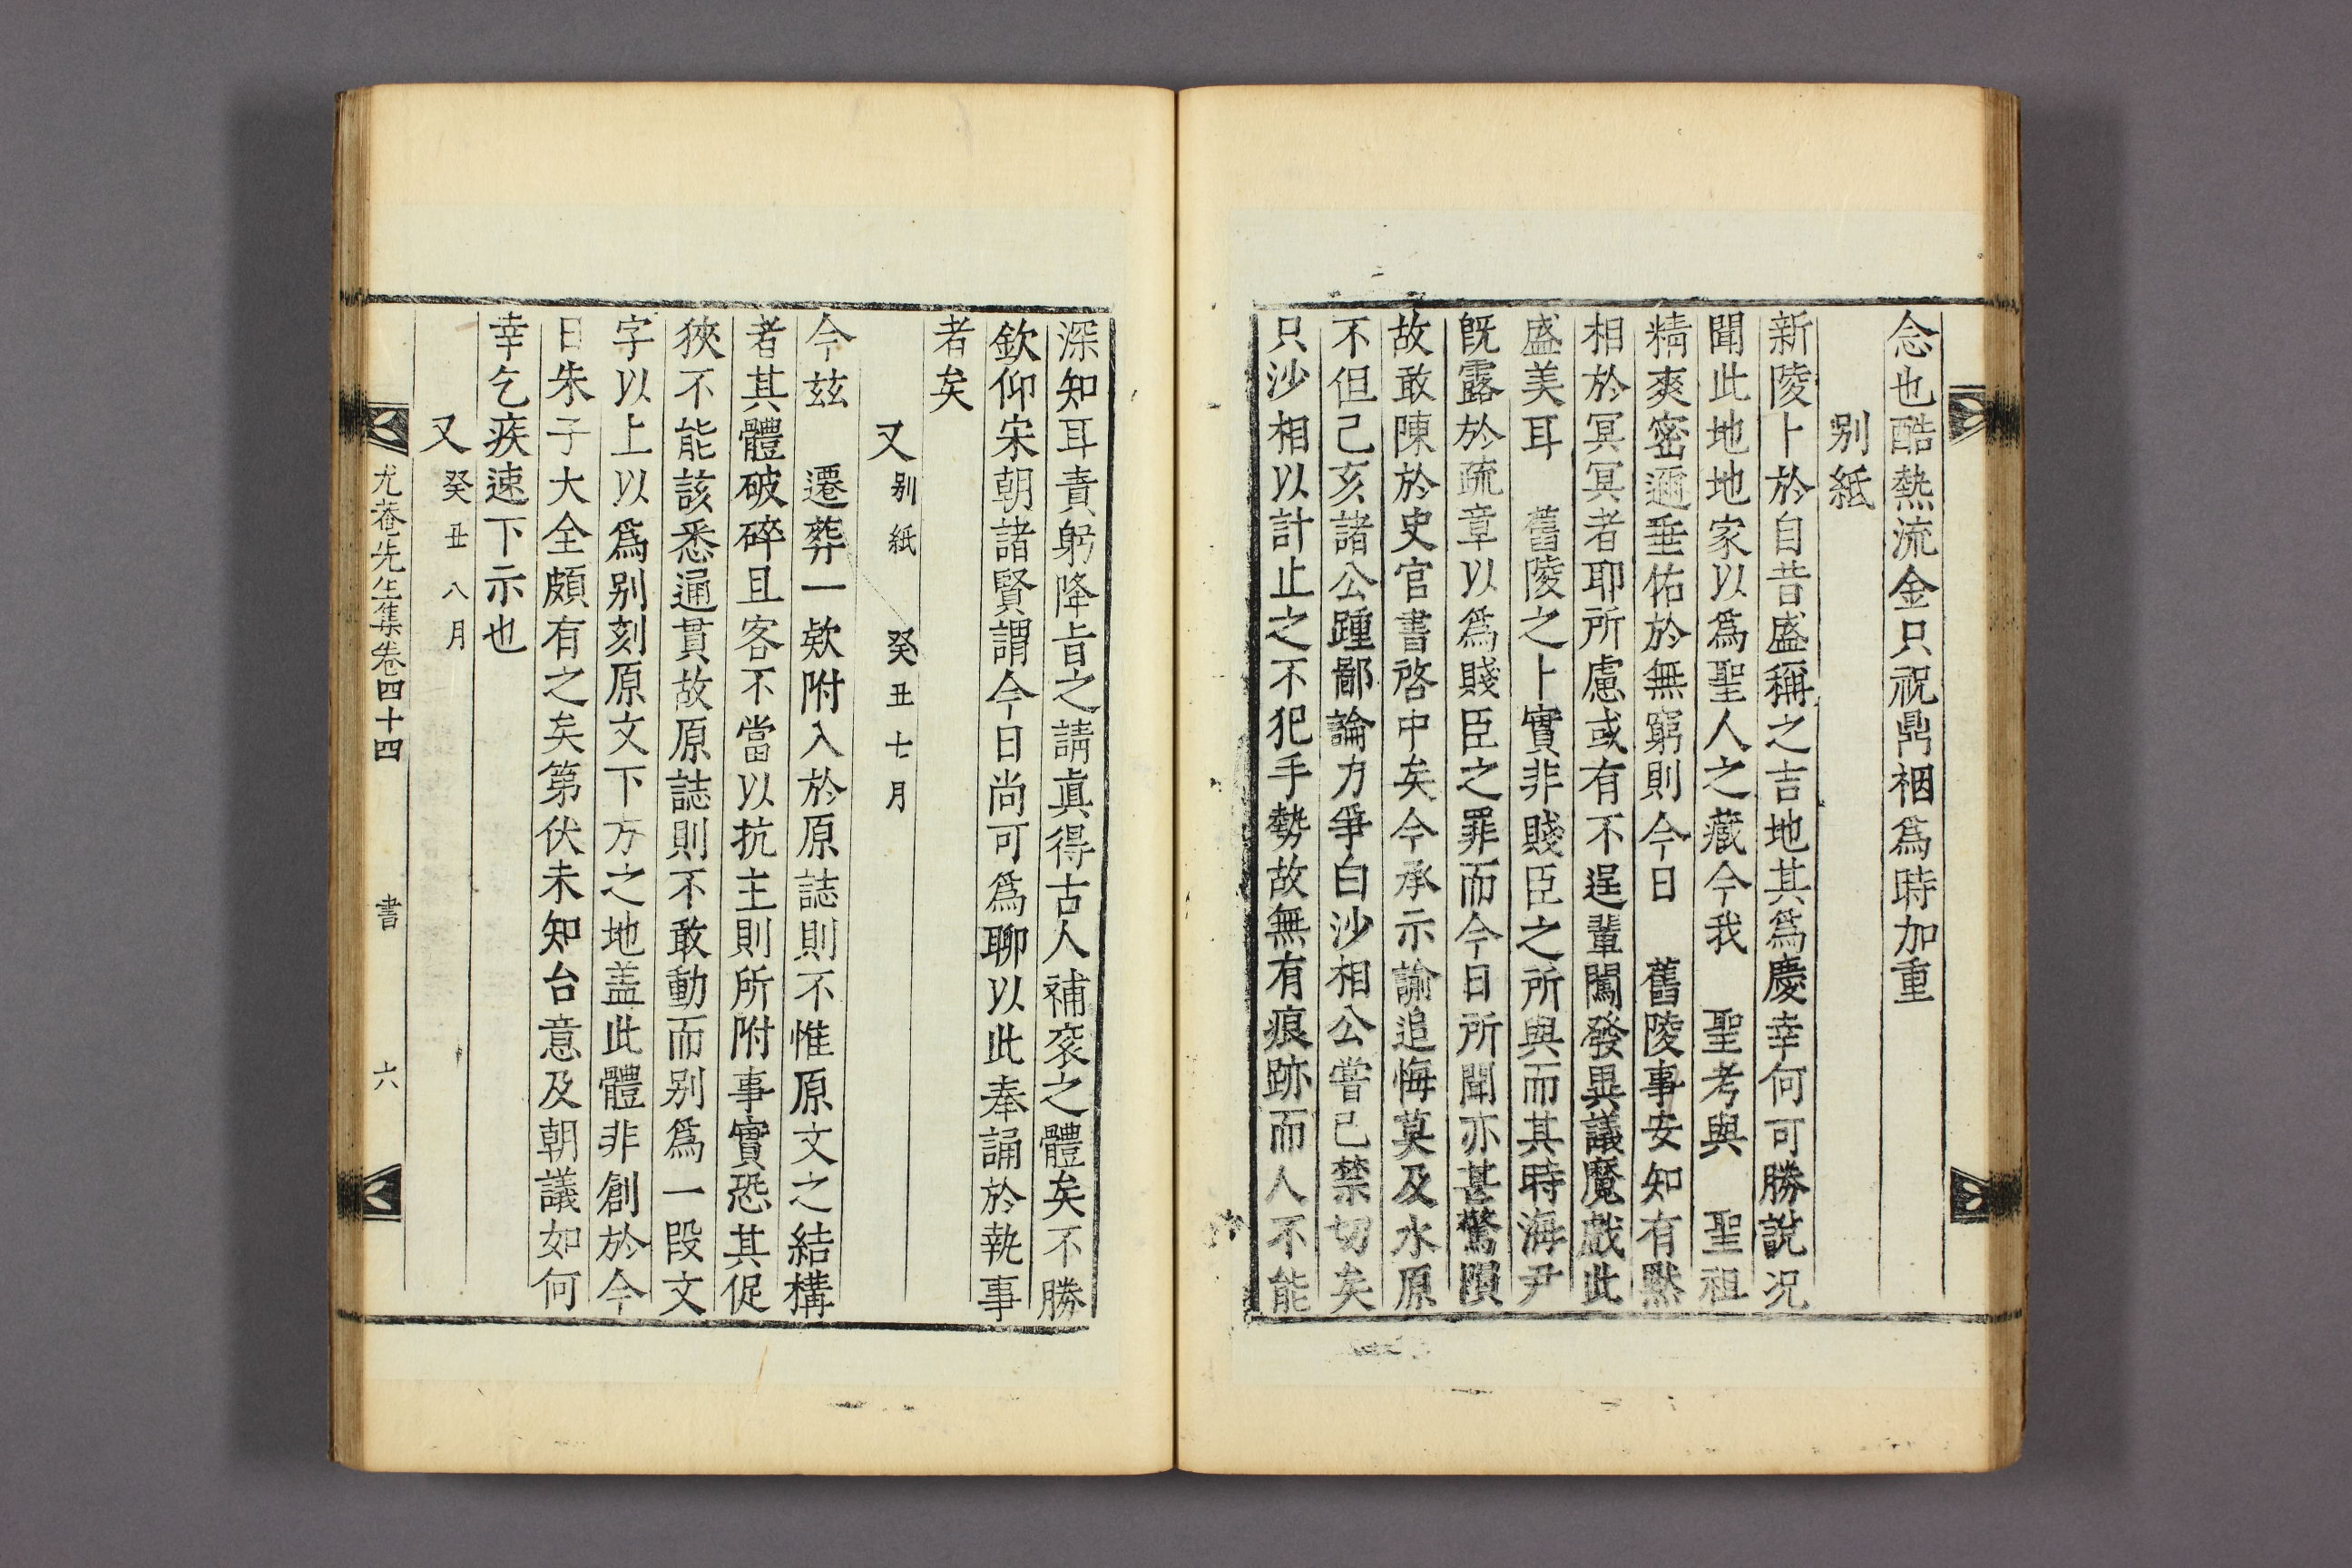 念也酷熱流金只祝鼎裀爲時加重
别紙
新陵卜於自昔盛稱之吉地其爲慶幸何可勝說况
聞此地地家以爲聖人之藏今我 聖考與 聖祖
精爽密邇垂佑於無窮則今日 舊陵事安知有黙
相於冥冥者耶所慮或有不逞輩闖發異議魔戱此
盛美耳 舊陵之卜實非賤臣之所與而其時海尹
旣露於疏章以爲賤臣之罪而今日所聞亦甚驚隕
故敢陳於史官書啓中矣今承示諭追悔莫及水原
不但己亥諸公踵鄙論力爭白沙相公嘗已禁切矣
只沙相以計止之不犯手勢故無有痕跡而人不能
深知耳責躬降旨之請眞得古人補衮之體矣不勝
欽仰宋朝諸賢謂今日尚可爲聊以此奉誦於執事
者矣
又 别紙 癸丑七月
今玆 遷葬一欵附入於原誌則不惟原文之結構
者其體破碎且客不當以抗主則所附事實恐其促
狹不能該悉通貫故原誌則不敢動而别爲一段文
字以上以爲别刻原文下方之地盖此體非創於今
日朱子大全頗有之矣第伏未知台意及朝議如何
幸乞疾速下示也
又 癸丑八月
尤菴先生集卷四十四 書 六